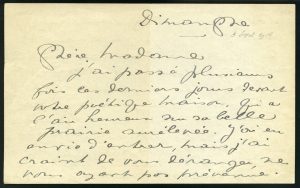 Dimanche
Chère Madame
j'ai passé plusieurs
fois ces derniers jours devant
votre poétique maison, qui a
l'air heureux sur sa belle
prairie surélevée. J'ai eu
envie d'entrer, mais j'ai
craint de vous déranger ne
vous ayant pas prévenue.